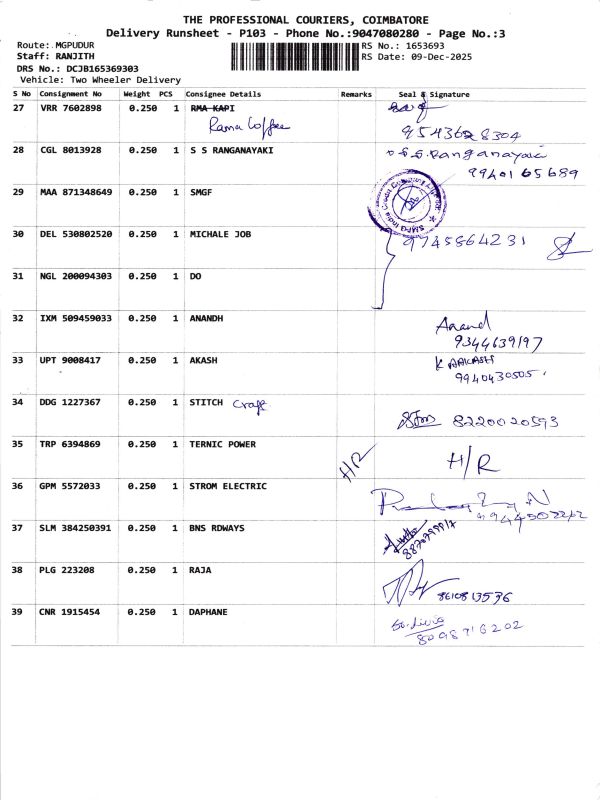 THE PROFESSIONAL COURIERS, COIMBATORE
Delivery Runsheet - P103 - Phone No.:9047080280 - Page No.:3
Route: MGPUDUR RS No.: 1653693
Staff: RANJITH RS Date: 09-Dec-2025
DRS No.: DCJB165369303
Vehicle: Two Wheeler Delivery
S No Consignment No Weight PCS Consignee Details Remarks Seal & Signature
27 VRR 7602898 0.250 1 RMA KAPI
Rama Coffee 9543628304
28 CGL 8013928 0.250 1 S S RANGANAYAKI S.S. Ranganayaki
9940165689
29 MAA 871348649 0.250 1 SMGF
30 DEL 530802520 0.250 1 MICHALE JOB 9745864231
31 NGL 200094303 0.250 1 DO
32 IXM 509459033 0.250 1 ANANDH Anand
9344639197
33 UPT 9008417 0.250 1 AKASH K AAKASH
9940430505.
34 DDG 1227367 0.250 1 STITCH Craft 8220020593
35 TRP 6394869 0.250 1 TERNIC POWER H/R H/R
36 GPM 5572033 0.250 1 STROM ELECTRIC
37 SLM 384250391 0.250 1 BNS RDWAYS
38 PLG 223208 0.250 1 RAJA 8610813536
39 CNR 1915454 0.250 1 DAPHANE
8098716202